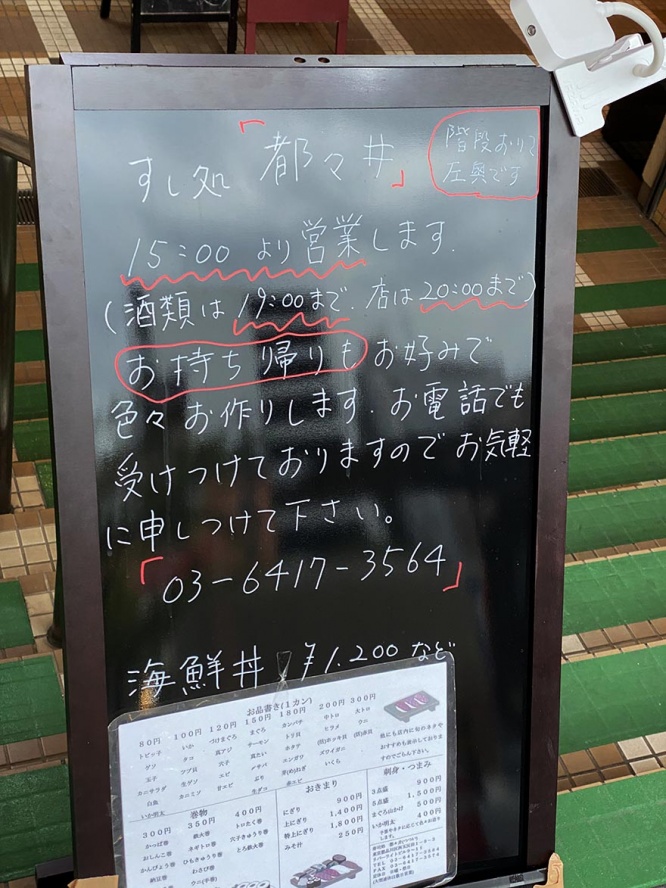 すし処「都々井」
階段おりて
左奥です
15:00 より営業します.
(酒類は19:00まで. 店は20:00まで)
お持ち帰りもお好みで
色々お作りします. お電話でも
受けつけておりますのでお気軽
に申しつけて下さい。
「03-6417-3564」
海鮮丼 ¥1.200 など
お品書き(1カン)
80円 100円 120円 150円 180円 200円 300円
トビッ子 いか づけまぐろ まぐろ カンパチ 中トロ 大トロ
ゲソ タコ 真アジ サーモン トリ貝 ヒラメ ウニ
玉子 ツブ貝 穴子 真たい ホタテ
カニサラダ 生ゲソ エビ メサバ エンガワ ズワイガニ
白魚 カニミソ 甘エビ ぶり いくら
いか明太 生ダコ 赤エビ
他にも店内に旬のネタや
おすすめも表示しております
巻物
300円 350円 400円
かっぱ巻 鉄火巻 トロたく巻
おしんこ巻 ネギトロ巻 穴子きゅうり巻
かんぴょう巻 ひもきゅうり巻 とろ鉄火巻
納豆巻 わさび巻
おきまり
にぎり 900円
上にぎり 1,400円
特上にぎり 1,800円
みそ汁 250円
刺身・つまみ
3点盛 900円
5点盛 1,500円
まぐろ山かけ 500円
いか明太 400円